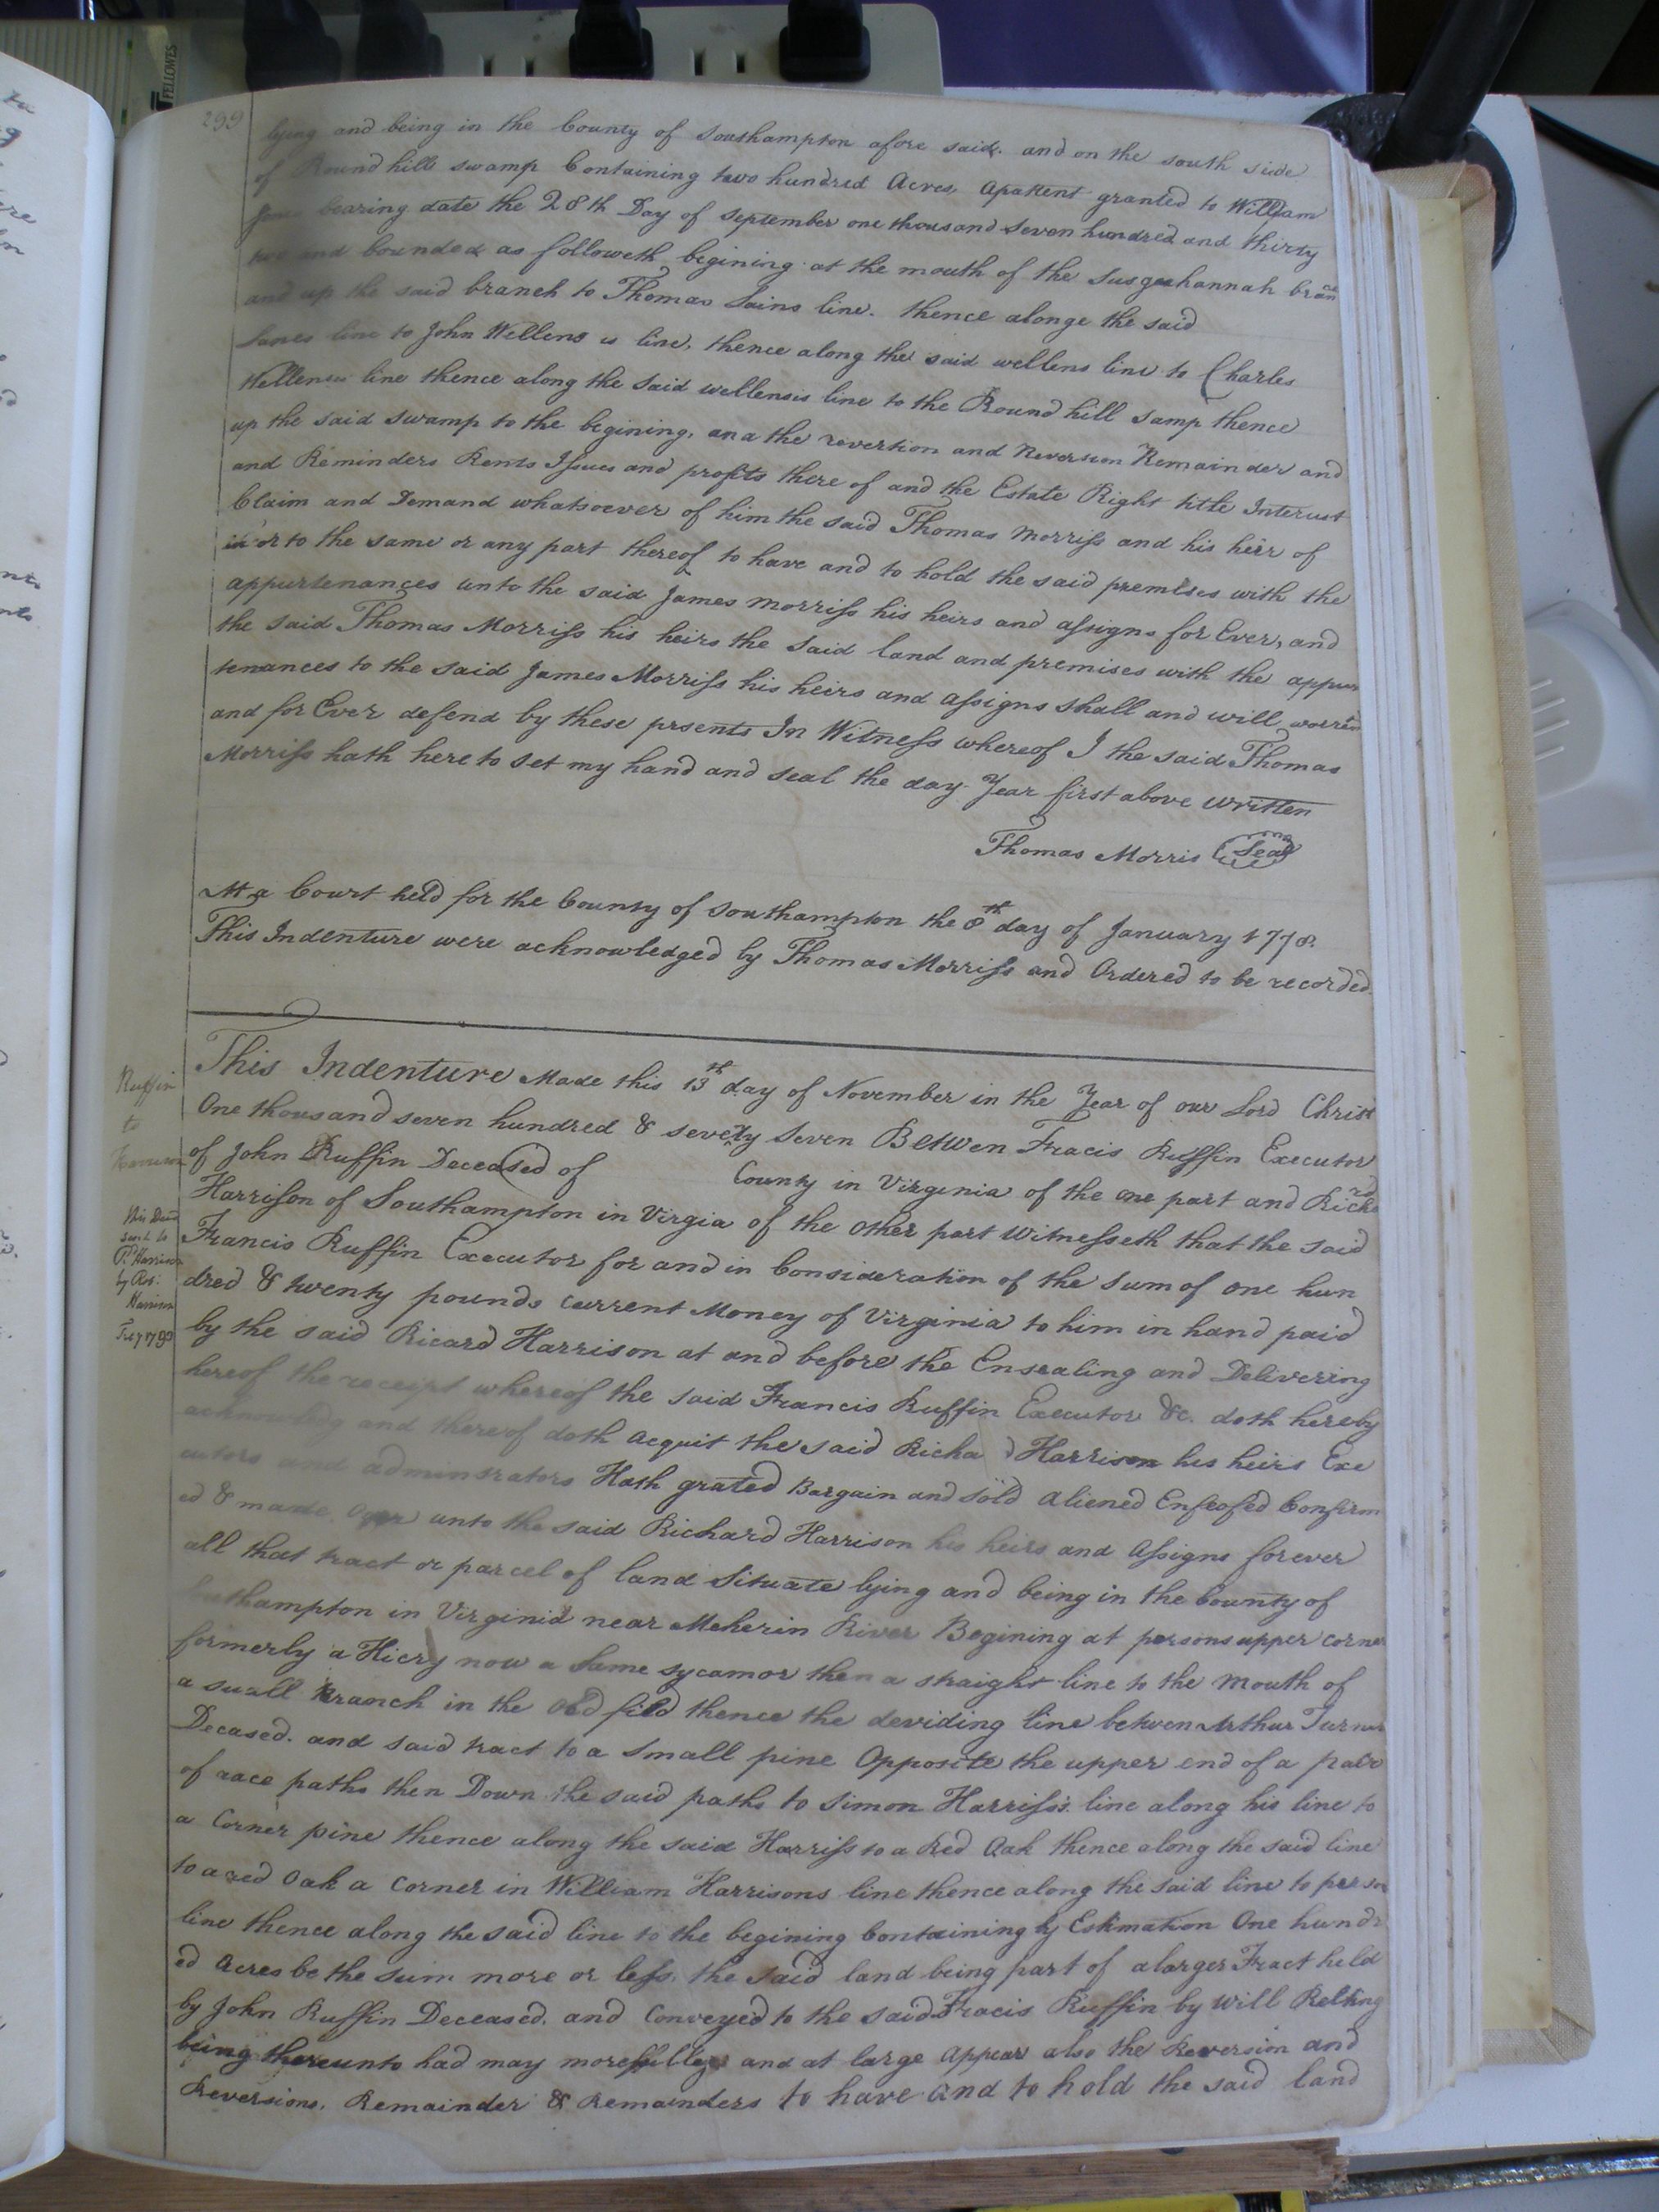 FELLOWES
299
lying and being in the County of Southampton afore said. and on the south side
of Round hills swamp Containing two hundred Acres, apattent granted to William
bearing date the 28th Day of September one thousand seven hundred and thirty
two and bounded as followeth begining at the mouth of the Susquehannah bran
and up the said branch to Thomas Sains line. thence alonge the said
line to John Wellens is line, thence along the said wellens line to Charles
Wellenses line thence along the said wellensis line to the Round hill samp thence
up the said swamp to the begining, ana the revertion and Reversion Remainder and
and Reminders Rents Issues and profits there of and the Estate Right title Interust
Claim and Demand whatsoever of him the said Thomas Morriss and his heir of
in or to the same or any part thereof to have and to hold the said premises with the
appurtenances unto the said James Morriss his heirs and assigns for Ever, and
the said Thomas Morriss his heirs the said land and premises with the appur
tenances to the said James Morriss his heirs and assigns shall and will worran
and for Ever defend by these prsents In Witness whereof I the said Thomas
Morriss hath here to set my hand and seal the day Year first above written
Thomas Morris Seal
At a Court held for the County of Southampton the 8th day of January 1778.
This Indenture were acknowledged by Thomas Morriss and Ordered to be recorded.
This Indenture Made this 13th day of November in the Year of our Lord Christ
One thousand seven hundred & sevety seven Betwen Fracis Ruffin Executor
of John Ruffin Deceased of County in Virginia of the one part and Richard
Harrison of Southampton in Virgia of the other part Witnesseth that the said
Francis Ruffin Executor for and in Consideration of the sum of one hun
dred & twenty pounds current Money of Virginia to him in hand paid
by the said Ricard Harrison at and before the Ensealing and Delivering
hereof the receipt whereof the said Francis Ruffin Executor &c. doth hereby
and thereof doth acquit the said Richa d Harrison his heirs Exe
cutors and adminsrators Hath grated Bargain and sold aliened Enfeofed Confirm
ed & made over unto the said Richard Harrison his heirs and Assigns forever
all that tract or parcel of land situate lying and being in the County of
Southampton in Virginia near Meherin River Begining at persons upper corner
formerly a Hicry now a Same sycamor then a straight line to the mouth of
a small Branch in the old field thence the deviding line betwen Arthur Turner
Decased. and said tract to a small pine Opposite the upper end of a pair
of race paths then Down the said paths to Simon Harriss's line along his line to
a Corner pine thence along the said Harriss to a Red Oak thence along the said line
to a red Oak a Corner in William Harrisons line thence along the said line to person
line thence along the said line to the begining Containing by Estimation One hundr
ed Acres be the sum more or less, the said land being part of a larger Tract held
by John Ruffin Deceased. and Conveyed to the said Fracis Ruffin by Will Relting
being thereunto had may more fully and at large appear also the Reversion and
Reversions, Remainder & Remainders to have and to hold the said land
Ruffin
to
Harrison
this Deed
sent to
Harrison
by
Harrison